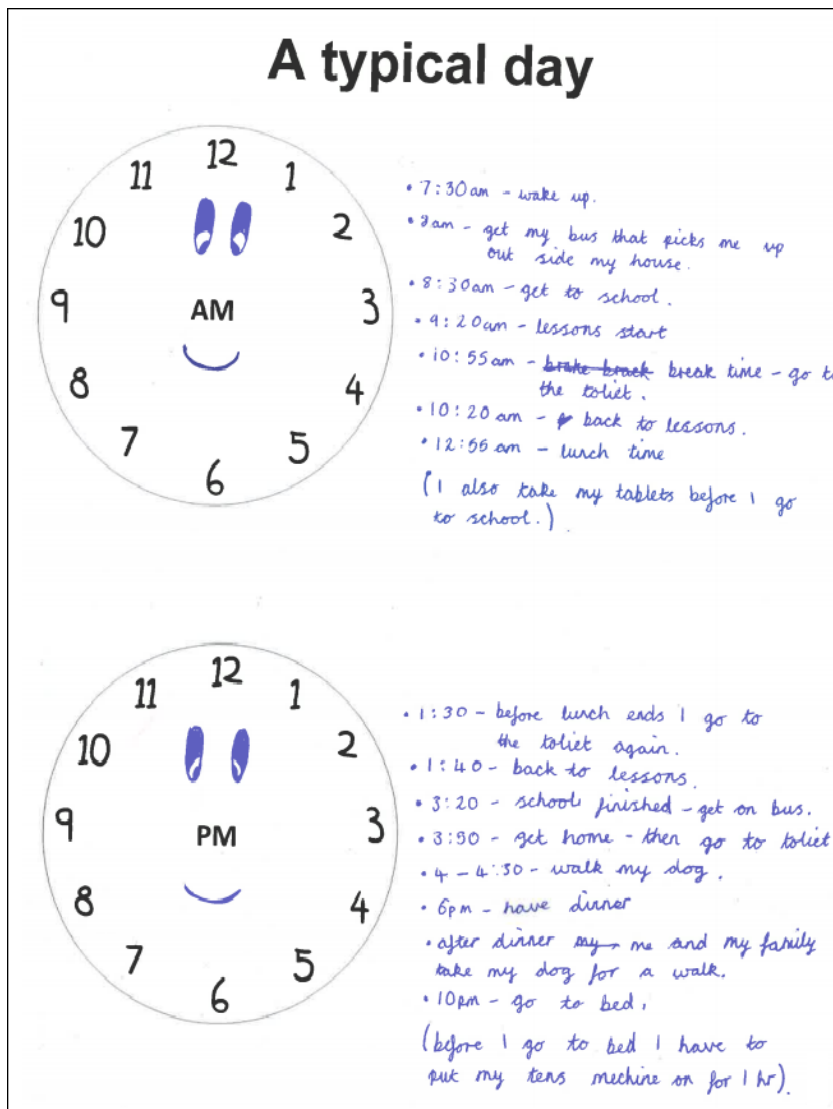 A typical day
12
11
1
10
2
9
AM
3
8
4
7
5
6
• 7:30am - wake up.
• 8am - get my bus that picks me up
out side my house.
• 8:30am - get to school.
• 9:20am - lessons start
• 10:55am - brake brack break time - go to
the toliet.
• 10:20am - back to lessons.
• 12:55am - lunch time
(I also take my tablets before I go
to school.)
12
11
1
10
2
9
PM
3
8
4
7
5
6
• 1:30 - before lunch ends I go to
the toliet again.
• 1:40 - back to lessons.
• 3:20 - school finished - get on bus.
• 3:50 - get home - then go to toliet
• 4 - 4:30 - walk my dog.
• 6pm - have dinner
• after dinner my me and my family
take my dog for a walk.
• 10pm - go to bed.
(before I go to bed I have to
put my tens mechine on for 1 hr).